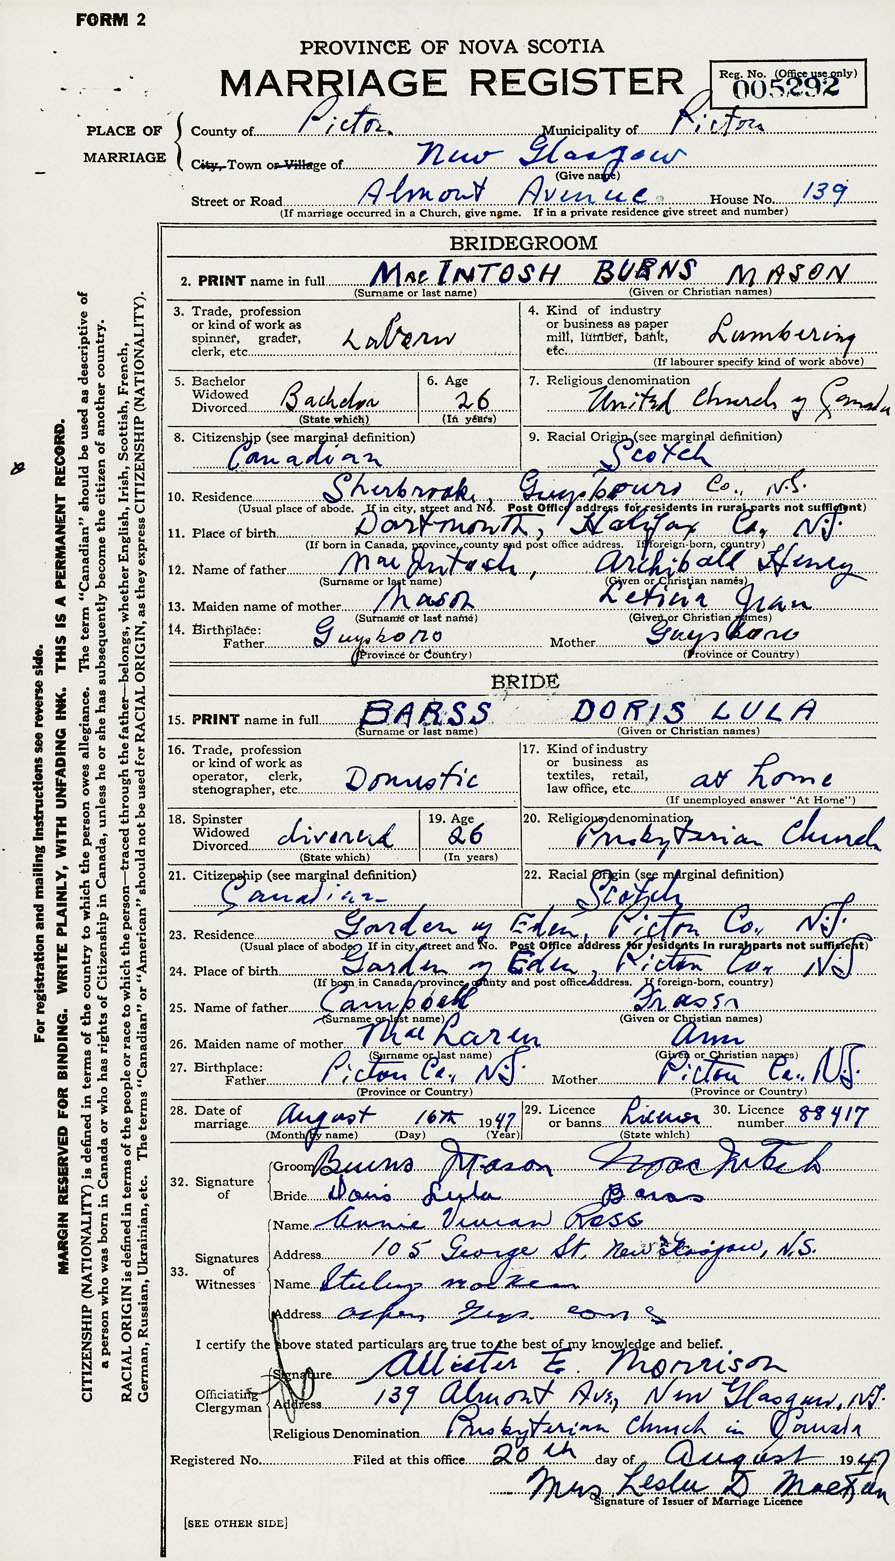 FORM 2
PROVINCE OF NOVA SCOTIA
MARRIAGE REGISTER
Reg. No. (Office use only)
005292
PLACE OF MARRIAGE
County of Picton Municipality of Picton
City, Town or Village of New Glasgow
(Give name)
Street or Road Almont Avenue House No. 139
(If marriage occurred in a Church, give name. If in a private residence give street and number)
BRIDEGROOM
2. PRINT name in full MacINTOSH BURNS MASON
(Surname or last name) (Given or Christian names)
3. Trade, profession or kind of work as spinner, grader, clerk, etc.
4. Kind of industry or business as paper mill, lumber, bank, etc. Lumbering
(If labourer specify kind of work above)
5. Bachelor Widowed Divorced Bachelor
(State which)
6. Age 26
(In years)
7. Religious denomination United Church of Canada
8. Citizenship (see marginal definition) Canadian
9. Racial Origin (see marginal definition) Scotch
10. Residence Sherbrooke, Guysboro Co., N.S.
(Usual place of abode. If in city, street and No. Post Office address for residents in rural parts not sufficient)
11. Place of birth Dartmouth, Halifax Co., N.S.
(If born in Canada, province, county and post office address. If foreign-born, country)
12. Name of father MacIntosh, Archibald Henry
(Surname or last name) (Given or Christian names)
13. Maiden name of mother Mason Leticia Jean
(Surname or last name) (Given or Christian names)
14. Birthplace: Father Guysboro Mother Guysboro
(Province or Country) (Province of Country)
BRIDE
15. PRINT name in full BARSS DORIS LULA
(Surname or last name) (Given or Christian names)
16. Trade, profession or kind of work as operator, clerk, stenographer, etc. Domestic
17. Kind of industry or business as textiles, retail, law office, etc. at home
(If unemployed answer "At Home")
18. Spinster Widowed Divorced divorced
(State which)
19. Age 26
(In years)
20. Religious denomination Presbyterian Church
21. Citizenship (see marginal definition) Canadian
22. Racial Origin (see marginal definition) Scotch
23. Residence Garden of Eden, Picton Co., N.S.
(Usual place of abode. If in city, street and No. Post Office address for residents in rural parts not sufficient)
24. Place of birth Garden of Eden, Picton Co., N.S.
(If born in Canada, province, county and post office address. If foreign-born, country)
25. Name of father Campbell Fraser
(Surname or last name) (Given or Christian names)
26. Maiden name of mother MacLaren Ann
(Surname or last name) (Given or Christian names)
27. Birthplace: Father Picton Co., N.S. Mother Picton Co., N.S.
(Province or Country) (Province or Country)
28. Date of marriage August 16th 1947
(Month by name) (Day) (Year)
29. Licence or banns License
(State which)
30. Licence number 88417
32. Signature of
Groom Burns Mason MacIntosh
Bride Doris Lula Barss
33. Signatures of Witnesses
Name Annie Vivian Ross
Address 105 George St. New Glasgow, N.S.
Name
Address
I certify the above stated particulars are true to the best of my knowledge and belief.
Officiating Clergyman
Signature Allister E. Morrison
Address 139 Almont Ave., New Glasgow, N.S.
Religious Denomination Presbyterian Church in Canada
Registered No. Filed at this office 20th day of August 1947
Mrs Leslie D
Signature of Issuer of Marriage Licence
[SEE OTHER SIDE]
For registration and mailing instructions see reverse side.
MARGIN RESERVED FOR BINDING. WRITE PLAINLY, WITH UNFADING INK. THIS IS A PERMANENT RECORD.
CITIZENSHIP (NATIONALITY) is defined in terms of the country to which the person owes allegiance. The term "Canadian" should be used as descriptive of
a person who was born in Canada or who has rights of Citizenship in Canada, unless he or she has subsequently become the citizen of another country.
RACIAL ORIGIN is defined in terms of the people or race to which the person—traced through the father—belongs, whether English, Irish, Scottish, French,
German, Russian, Ukrainian, etc. The terms "Canadian" or "American" should not be used for RACIAL ORIGIN, as they express CITIZENSHIP (NATIONALITY).